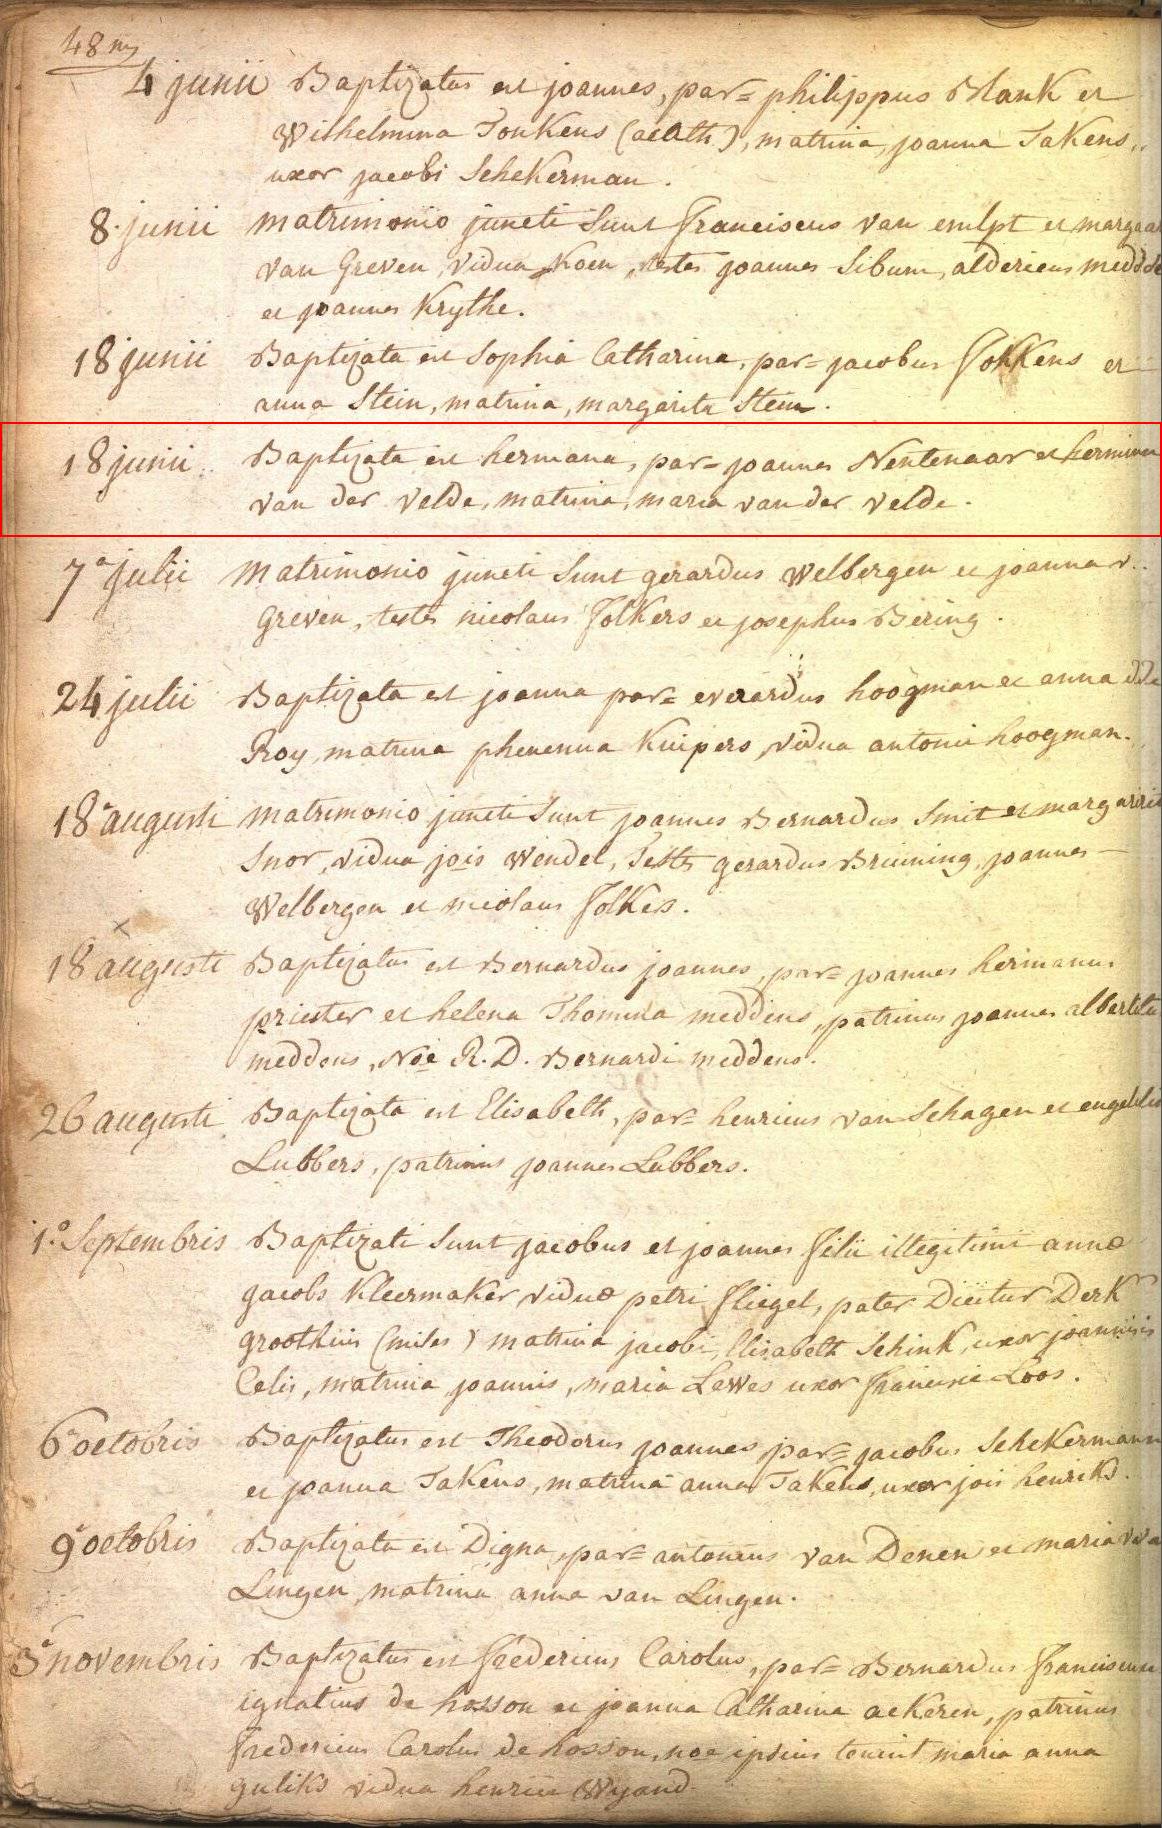 48
4 junii Baptizatus est joannes, par= philippus Blank et
Wilhelmina Tonkens (acath), matrina, joanna Takens,
uxor jacobi Schekerman.
8. junii matrimonio juncti Sunt franciscus van emlpt et
van Greven, vidua Koen, testes joannes Sibum, aldericus
et joannes Krythe.
18 junii Baptizata est Sophia Catharina, par= jacobus Fokkens et
anna Stein, matrina, margarita Stein.
18 junii Baptizata est hermana, par= joannes Nentenaar et hermina
van der velde, matrina, maria van der velde.
7a julii Matrimonio juncti Sunt gerardus welbergen et joanna v.
Greven, testes nicolaus Folkers et josephus Bering.
24 julii Baptizata est joanna par= everardus hoogman et anna
Roy, matrina phenenna Kuipers, vidua antonii hoogman.
18a augusti matrimonio juncti Sunt joannes Bernardus Smit et
Snor, vidua jois Wendel, Testes gerardus Bruining, joannes
Welbergen et nicolaus Folkers.
18 augusti Baptizatus est Bernardus joannes, par= joannes hermanus
priester et helena Thomina meddens, patrinus joannes
meddens, Noē R. D. Bernardi meddens.
26 augusti Baptizata est Elisabeth, par= henricus van Schagen et
Lubbers, patrinus joannes Lubbers.
1.o Septembris Baptizati Sunt jacobus et joannes filii illegitimi annæ
jacobs Kleermaker viduæ petri fliegel, pater Dicitur Derk
Groothuis (miles) matrina jacobi, Elisabeth Schink, uxor joannis
Celis, matrina joannis, maria Lewes uxor francisci Loos.
6 octobris Baptizatus est Theodorus joannes, par= jacobus Schekerman
et joanna Takens, matrina anna Takens, uxor jois henriks.
9 octobris Baptizata est Digna, par= antonius van Denen et maria
Lingen, matrina anna van Lingen.
3a novembris Baptizatus est fredericus Carolus, par= Bernardus franciscus
ignatius de hosson et joanna Catharina ackeren, patrinus
fredericus Carolus de hosson, noē ipsius tenuit maria anna
guliks vidua henrici Wyand.